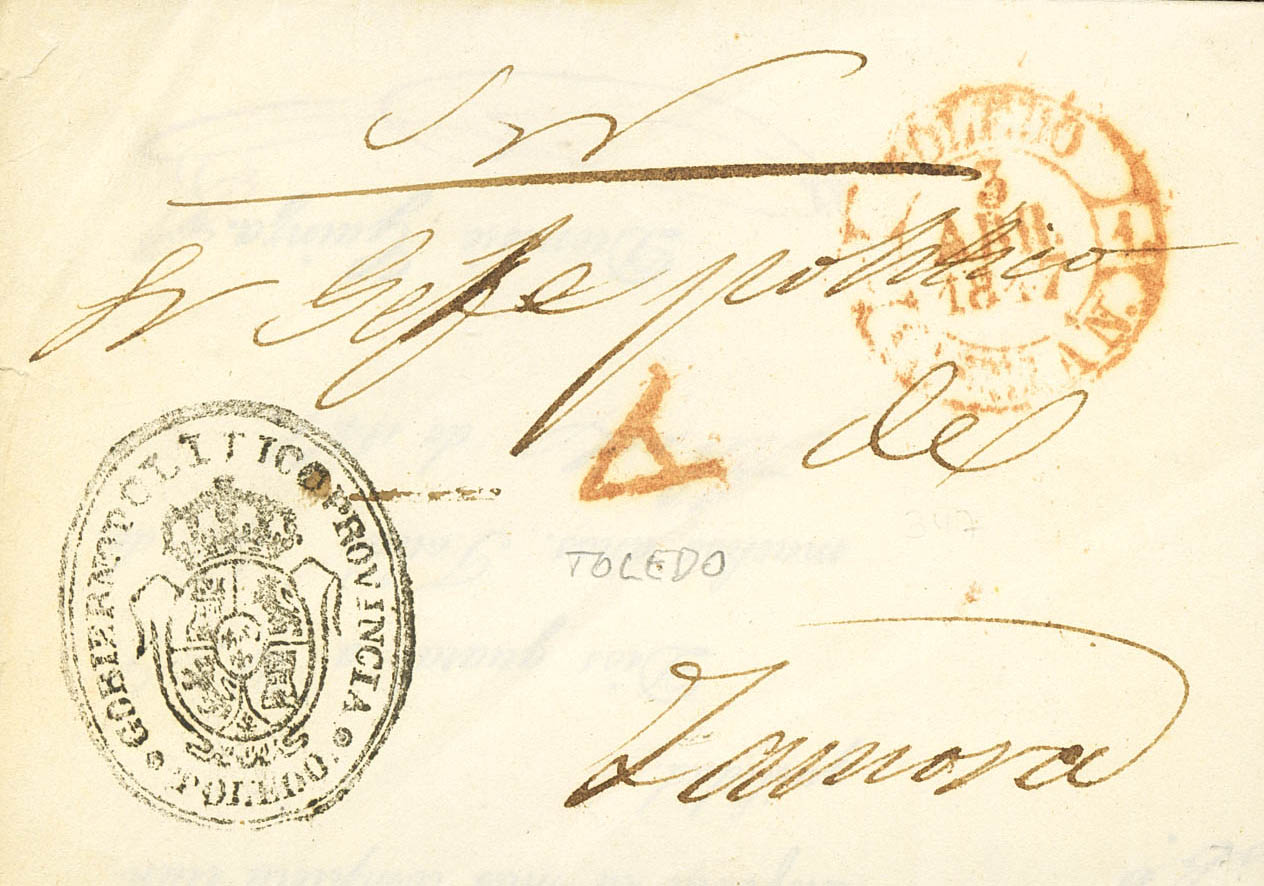 S N
TOLEDO
3
ABR.
1847
1.
C. NV.
Sr Gefe politico
de
A
GOBIERNO POLITICO PROVINCIA
TOLEDO.
TOLEDO
347
Zamora